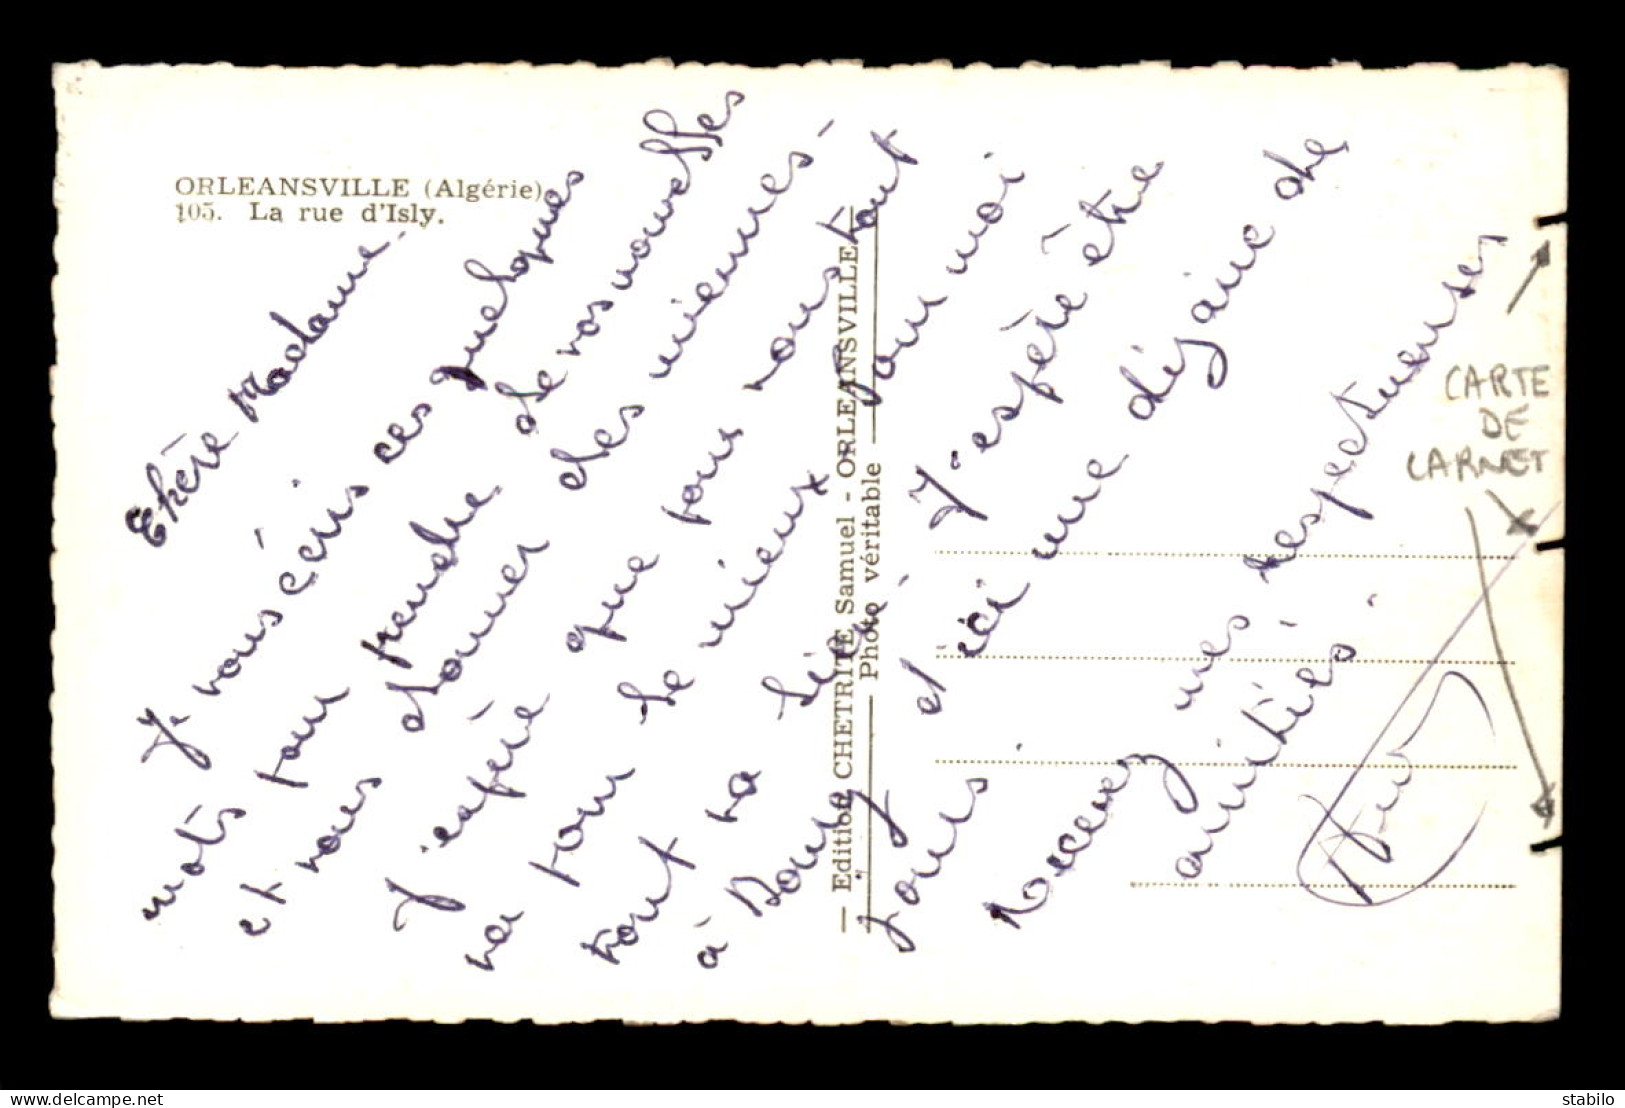 ORLEANSVILLE (Algérie)
105. La rue d'Isly.
Chère Madame.
Je vous écris ces quelques
mots pour prendre de vos nouvelles
et vous donner des miennes.
J'espère que pour vous tout
va pour le mieux pour moi
tout va bien. J'espère être
à Bourg d'ici une dizaine de
jours.
Recevez mes respectueuses
amitiés.
— Edition CHETRITE Samuel - ORLEANSVILLE —
Photo véritable
CARTE
DE
CARNET
www.delcampe.net
stabilo